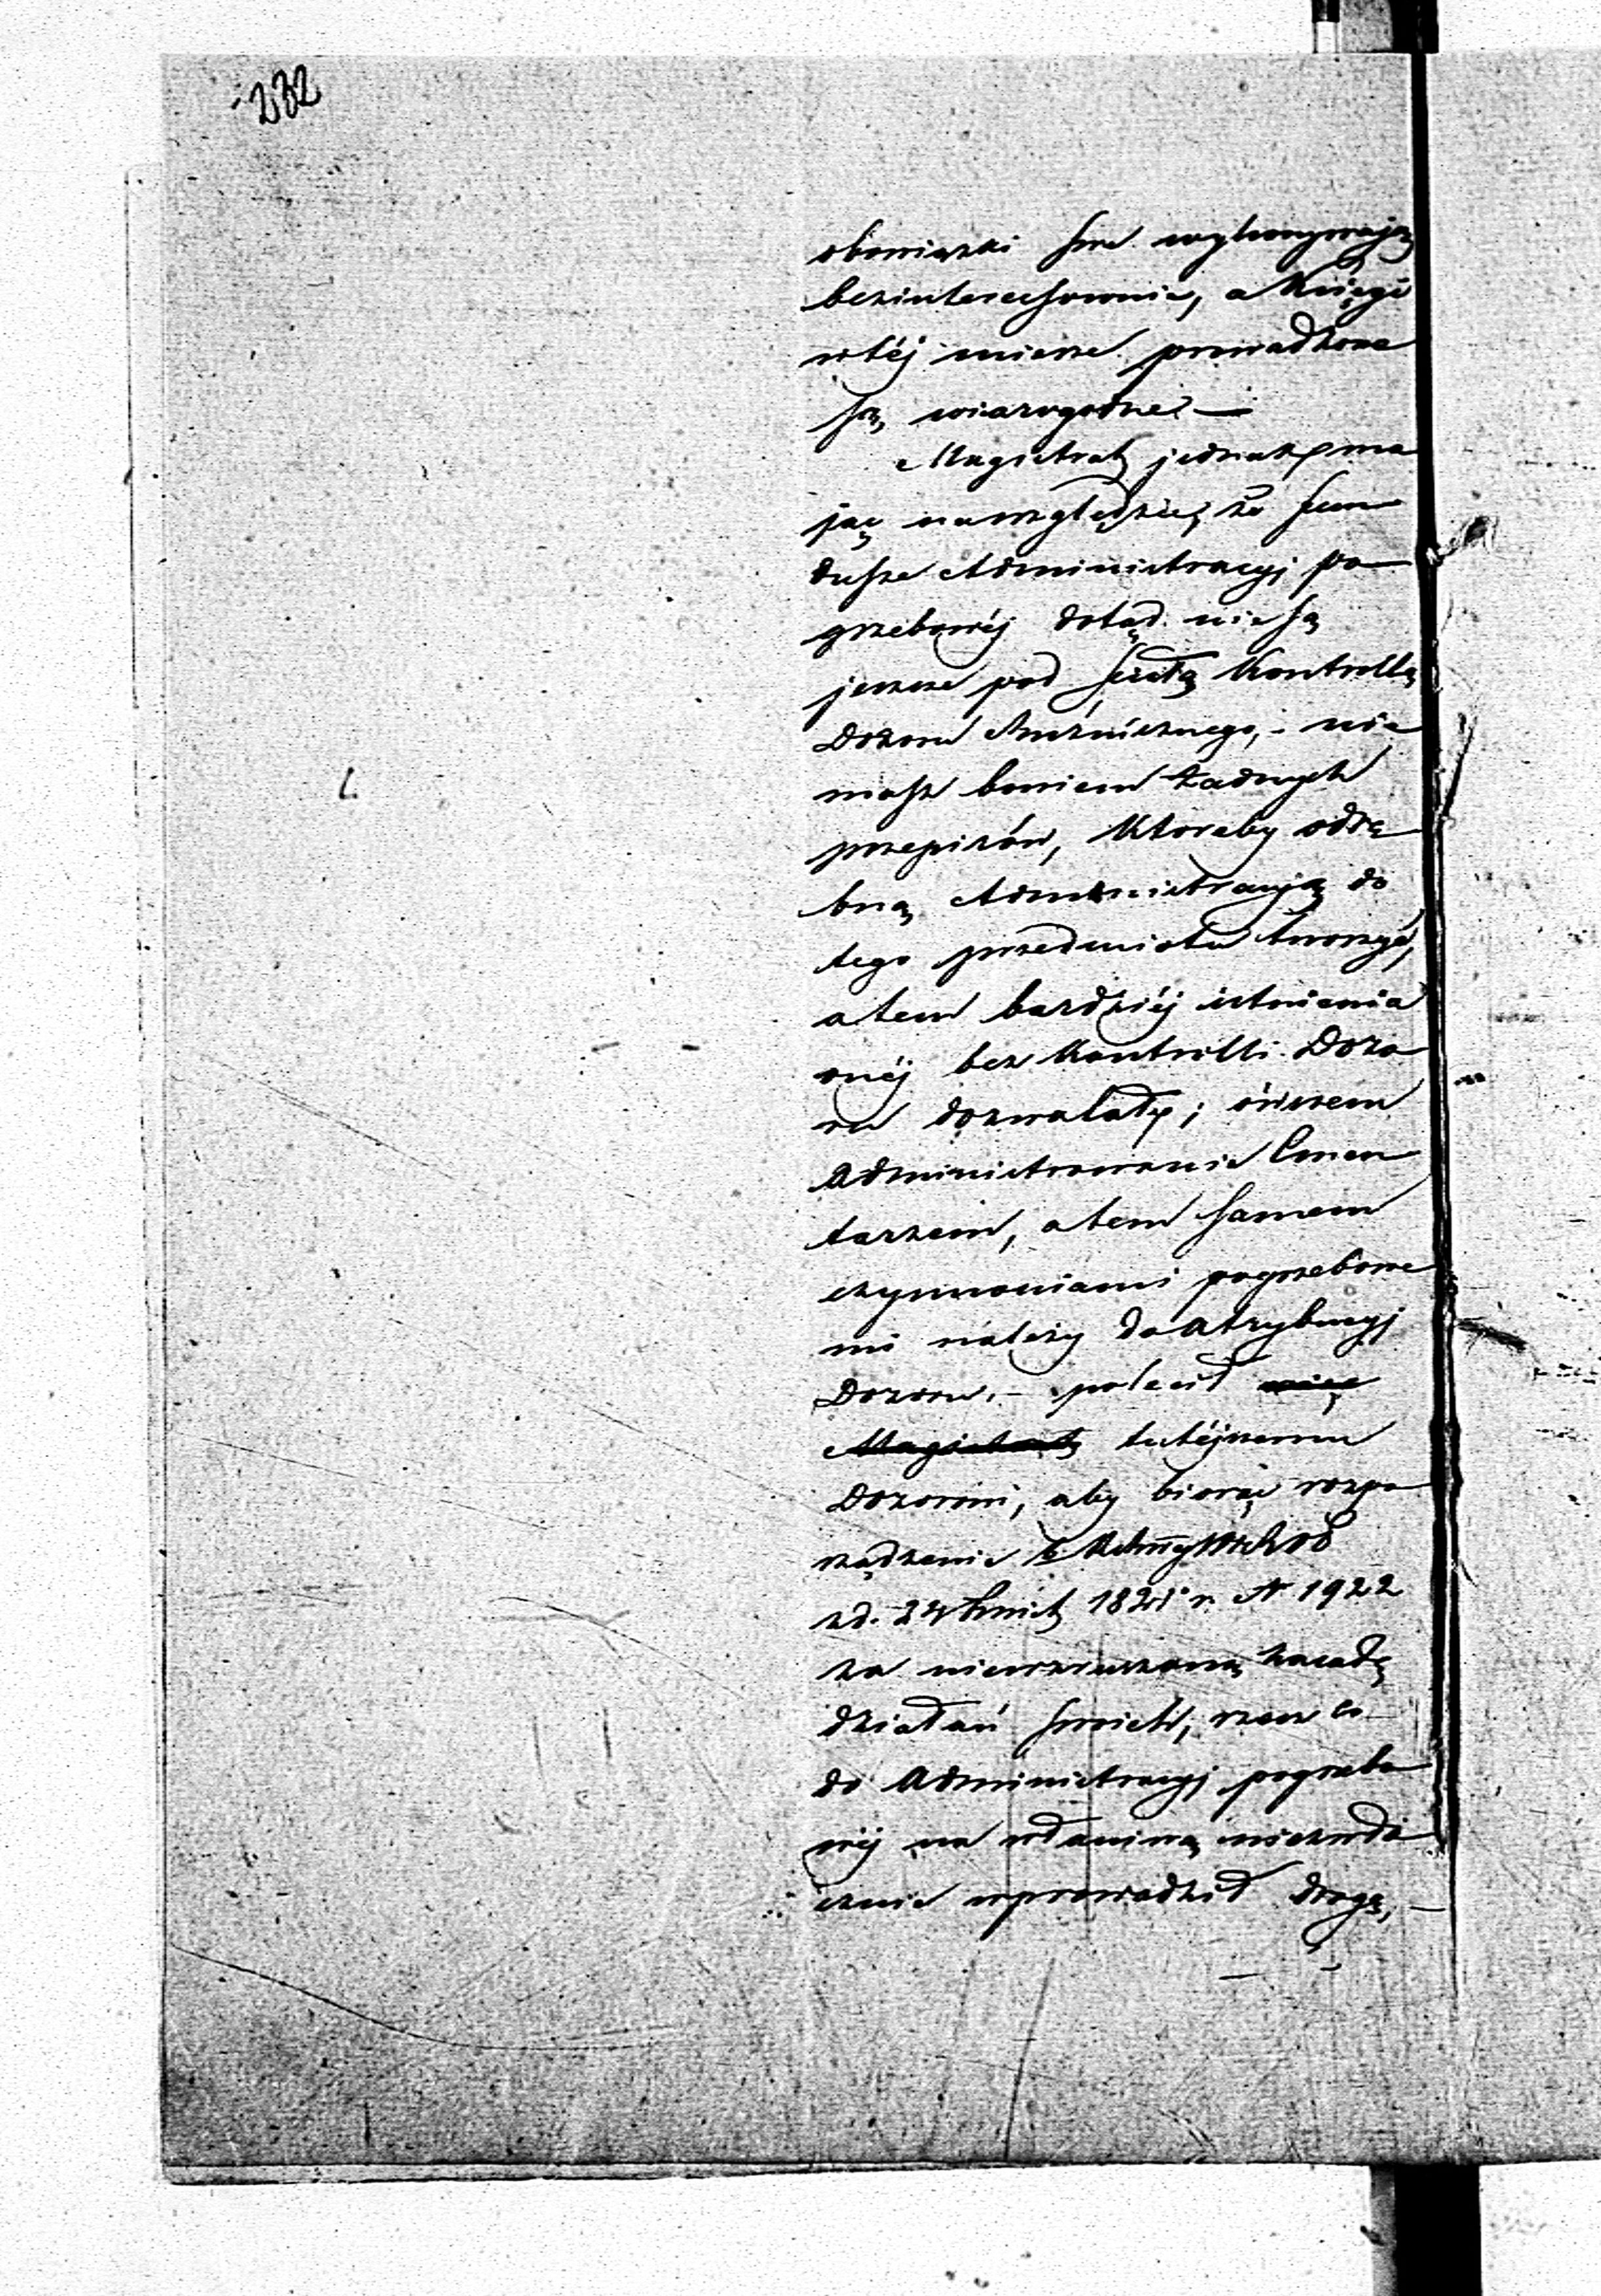 232
obowiązki swe wykonywają
bezinteresownie, a Księgi
w téj mierze prowadzone
są, wiarogodne. —
Magistrat jednak ma
jąc na względzie, że fun
dusze Administracyj po
grzebowéj dotąd nie są
jeszcze pod ścisłą Kontrollą
Dozoru Bużniczego, - nie
masz bowiem żadnych
przepisów, któreby odrę
bną Administracyją do
tego przedmiotu tworzyć,
a tem bardziéj istnienia
onéj bez Kontrolli Dozo
ru dozwalały; ówszem
Administrowanie Cmen
tarzem, a tem samem
czynnościami pogrzebowe
mi należy do atrybucyj
Dozoru. — polecił więc
Magistrat tutéjszemu
Dozorowi, aby biorąc rozpo
rządzenie
z d. 24 1821 r. N 1922
za niewzruszoną zasadę
działań swoich, rzecz co
do Administracyj pogrzebo
wéj na właściwą niezwło
cznie wprowadził drogę, —